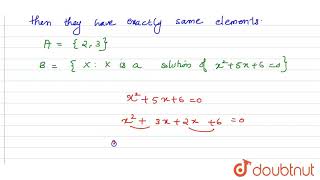 then they have exactly same elements.
A = {2,3}
B = {x : x is a solution of x²+5x+6=0}
x²+5x+6=0
x²+ 3x+2x +6 =0
doubtnut